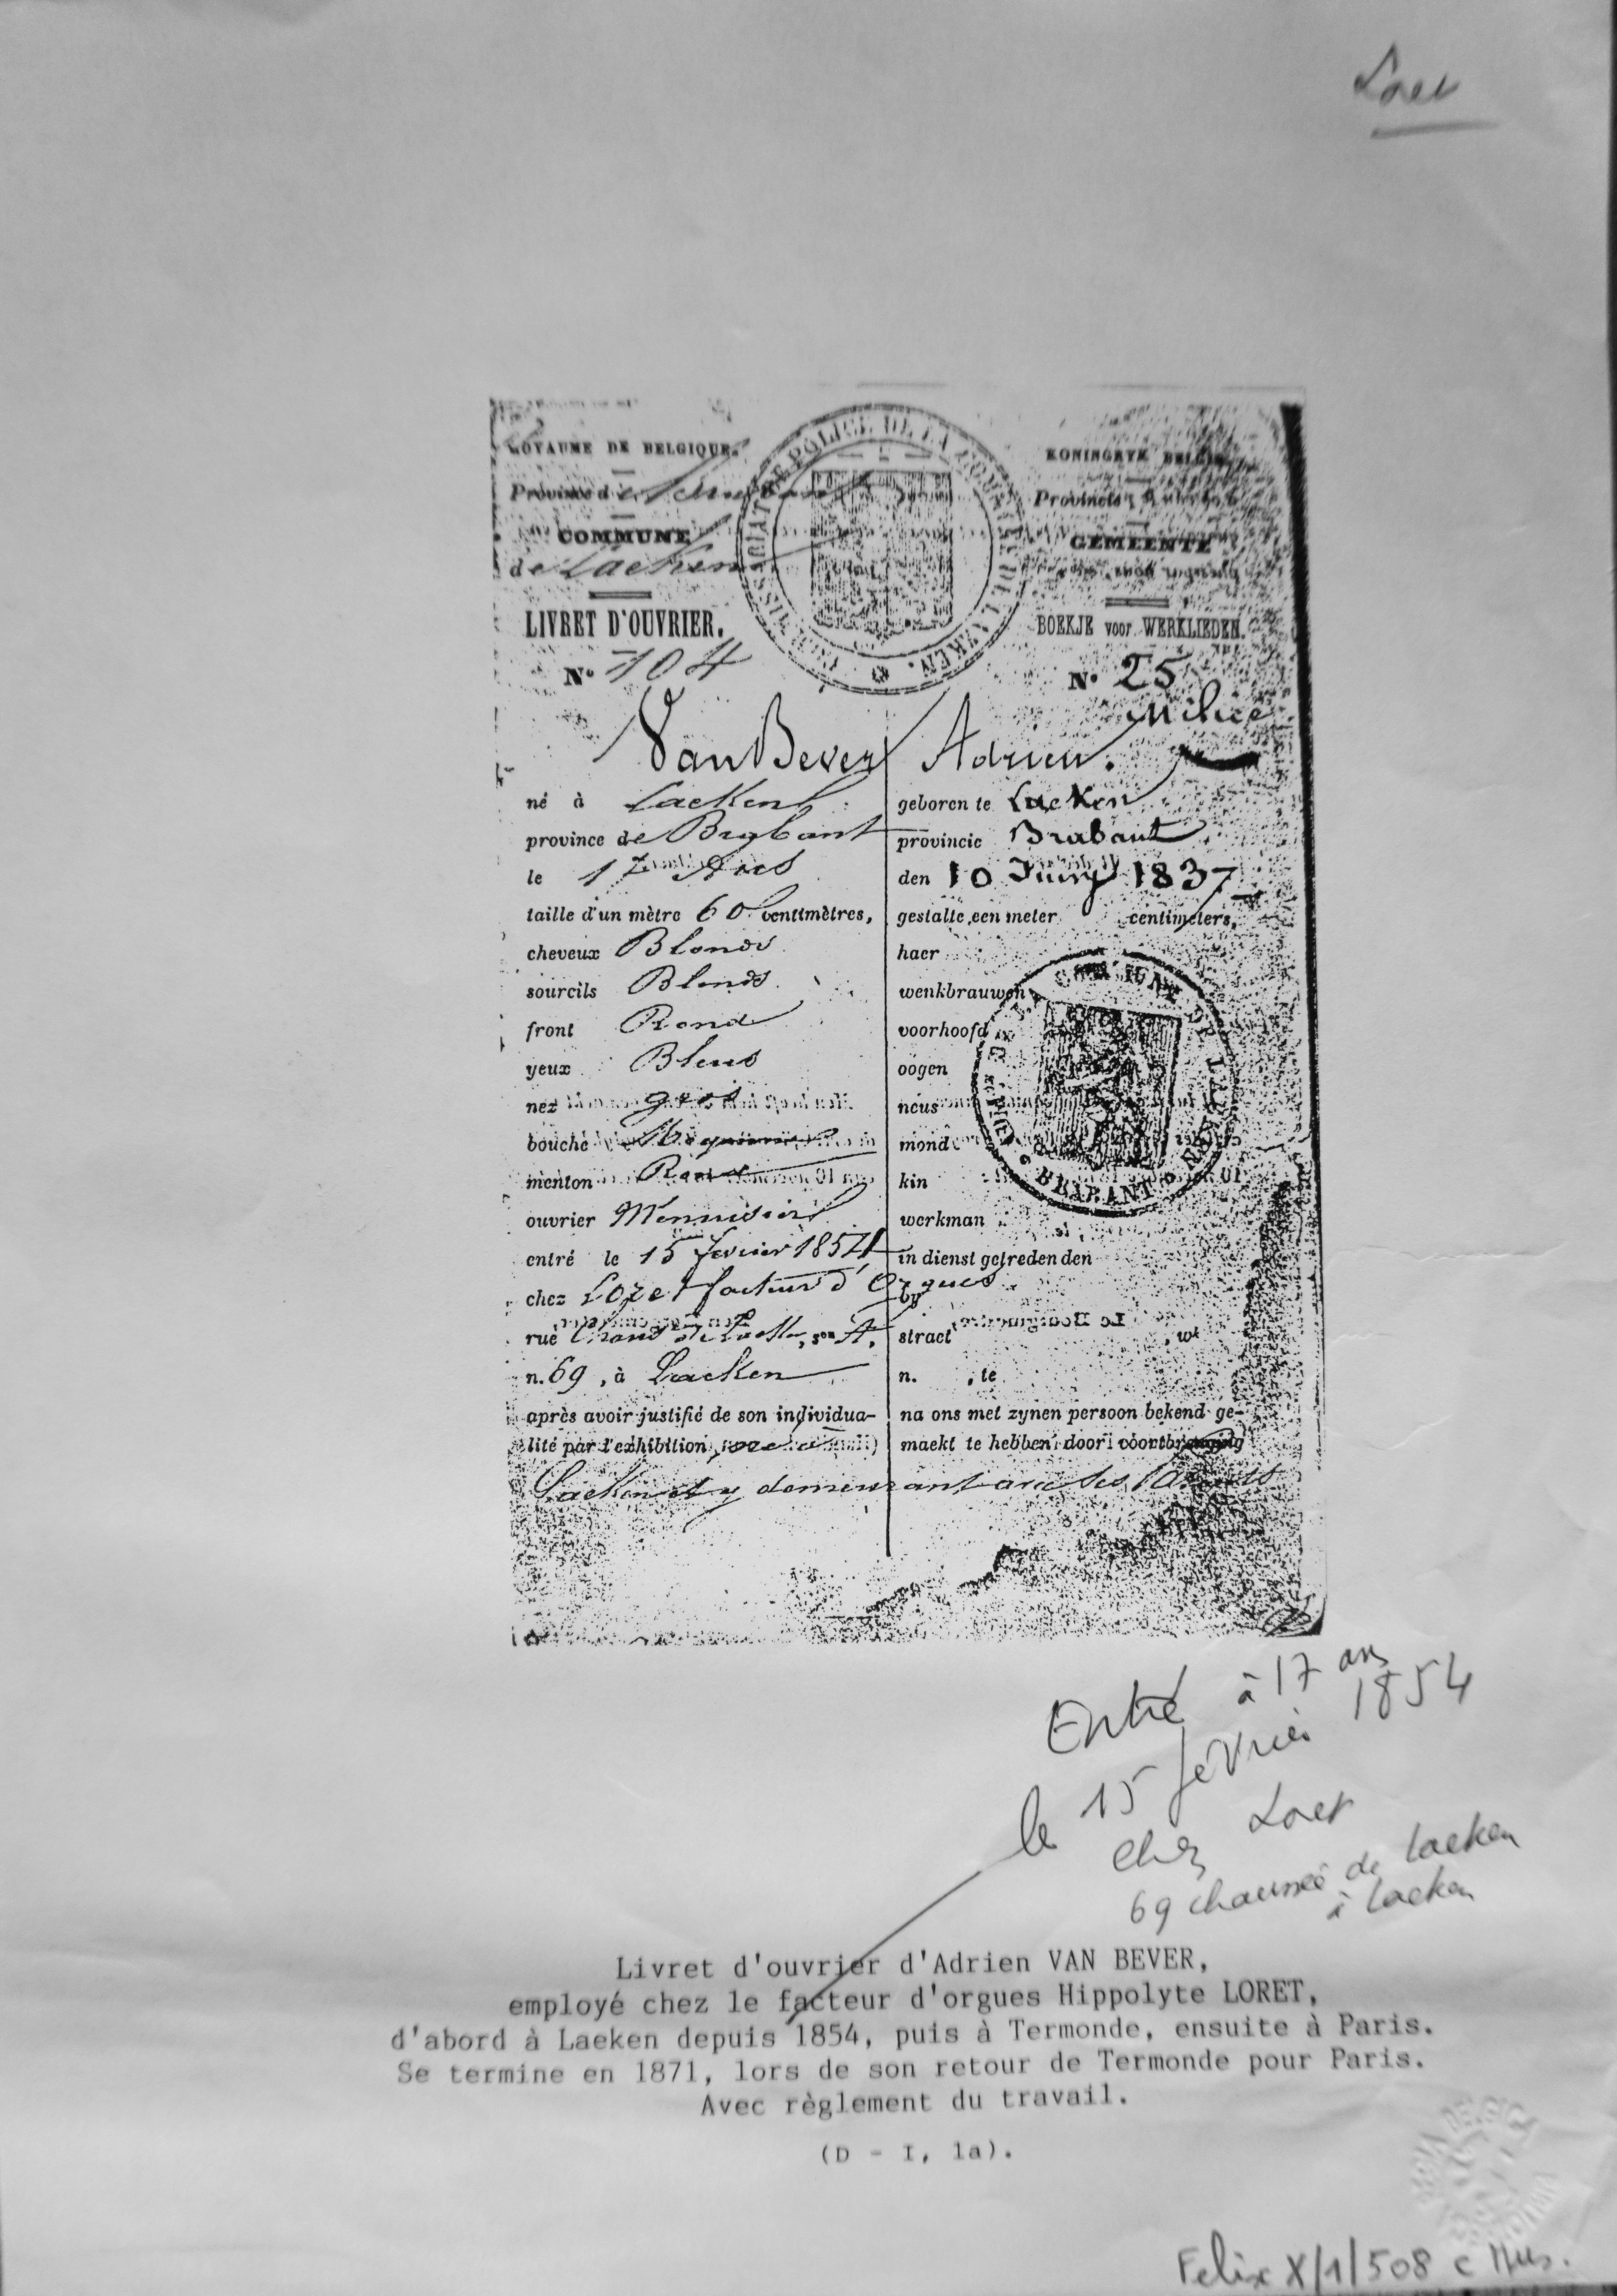 Loret
ROYAUME DE BELGIQUE.
KONINGRYK BELGIE.
Province de
Provincie
COMMUNE
GEMEENTE
de Laeken
COMMISSARIAT DE POLICE DE LA COMMUNE DE LAEKEN.
LIVRET D'OUVRIER.
BOEKJE voor WERKLIEDEN.
N° 104
N° 25
Milice
Van Bever Adrien.
né à Laeken
geboren te Laeken
province de Brabant
provincie Brabant
le 17 Ans
den 10 Juny 1837
taille d'un mètre 60 centimètres,
gestalte een meter centimeters,
cheveux Blonds
haer
sourcils Blonds
wenkbrauwen
front Rond
voorhoofd
yeux Bleus
oogen
nez gros
neus
bouche Moyenne
mond
menton Rond
kin
BRABANT
ouvrier Menuisier
werkman
entré le 15 fevrier 1854
in dienst getreden den
chez Loret facteur d'Orgues
by
rue , son A,
straet , wk
n. 69 , à Laeken
n. , te
après avoir justifié de son individua-
na ons met zynen persoon bekend ge-
lité par l'exhibition
maekt te hebben door voortbrenging
Laeken et y demeurant avec ses Parents
Entré à 17 ans
le 15 février 1854
chez Loret
69 chaussée de Laeken
à Laeken
Livret d'ouvrier d'Adrien VAN BEVER,
employé chez le facteur d'orgues Hippolyte LORET,
d'abord à Laeken depuis 1854, puis à Termonde, ensuite à Paris.
Se termine en 1871, lors de son retour de Termonde pour Paris.
Avec règlement du travail.
(D - I, 1a).
Felix X/1/508 c Mus.